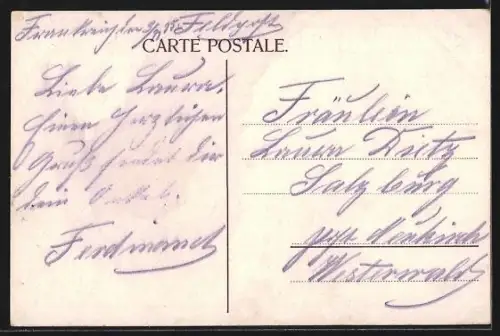 Frankreich den 9/ 15 Feldpost
CARTE POSTALE.
Liebe Laura.
Einen Herzlichen
Gruß sendet dir
dein Onkel.
Ferdinand
Fräulein
Laura Deitz
Salzburg
post Neukirch
Westerwald